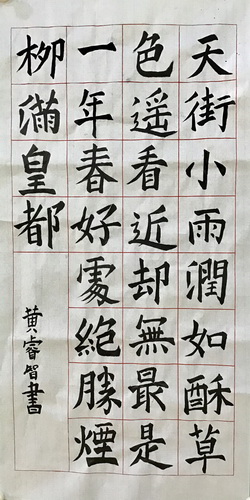 天街小雨潤如酥草
色遥看近却無最是
一年春好處絕勝煙
柳滿皇都
黄睿智書